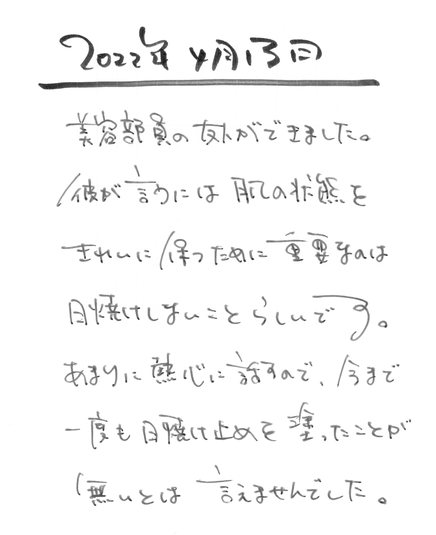 2022年4月13日
美容部員の友人ができました。
彼が言うには肌の状態を
きれいに保つために重要なのは
日焼けしないことらしいです。
あまりに熱心に話すので、今まで
一度も日焼け止めを塗ったことが
無いとは言えませんでした。